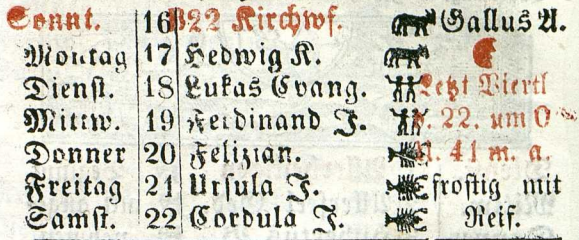 Sonnt. 16 B22 Kirchwf. Gallus A.
Montag 17 Hedwig K.
Dienst. 18 Lukas Evang. Letzt Viertl
Mittw. 19 Ferdinand J. 22. um 0
Donner 20 Felizian. 41 m. a.
Freitag 21 Ursula J. frostig mit
Samst. 22 Cordula J. Reif.